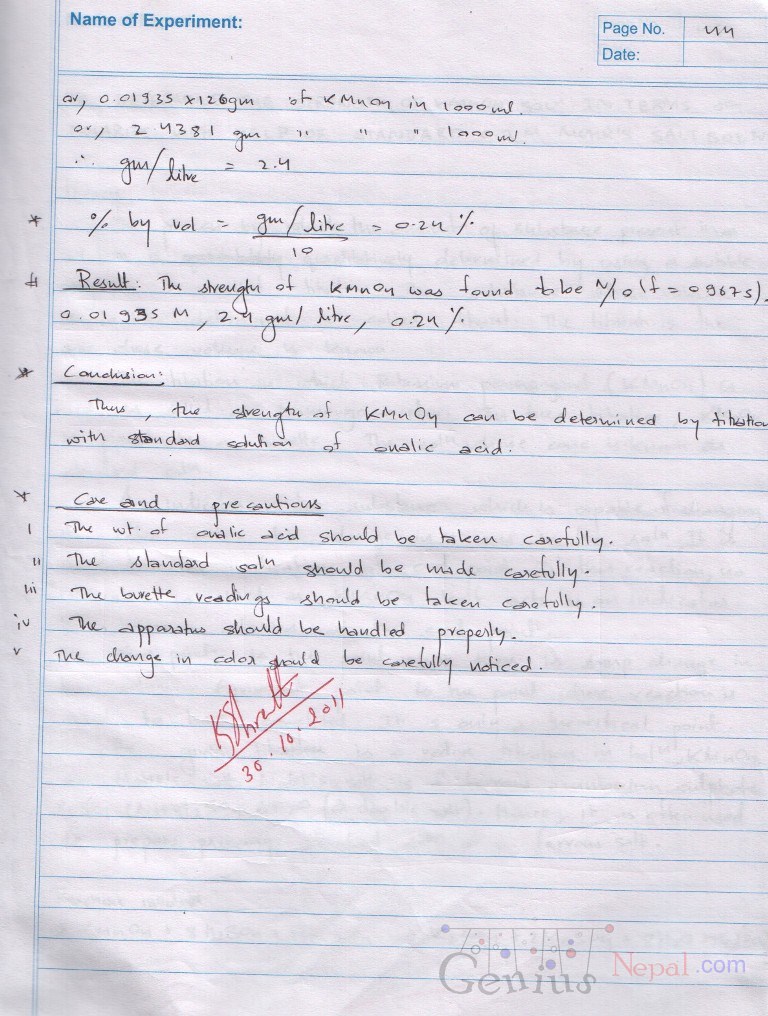 Name of Experiment:
Page No. 44
Date:
or, 0.01935 x 126gm of KMnO4 in 1000ml.
or, 2.4381 gm " " " 1000ml.
∴ gm/litre = 2.4
* % by vol = gm/litre / 10 = 0.24 %
# Result: The strength of KMnO4 was found to be N/10 (f = 0.9675).
0.01935 M, 2.4 gm/litre, 0.24 %.
* Conclusion:
Thus, the strength of KMnO4 can be determined by titration
with standard solution of oxalic acid.
* Care and precautions
i The wt. of oxalic acid should be taken carefully.
ii The standard soln should be made carefully.
iii The burette readings should be taken carefully.
iv The apparatus should be handled properly.
v The change in color should be carefully noticed.
30.10.2011
Genius Nepal.com